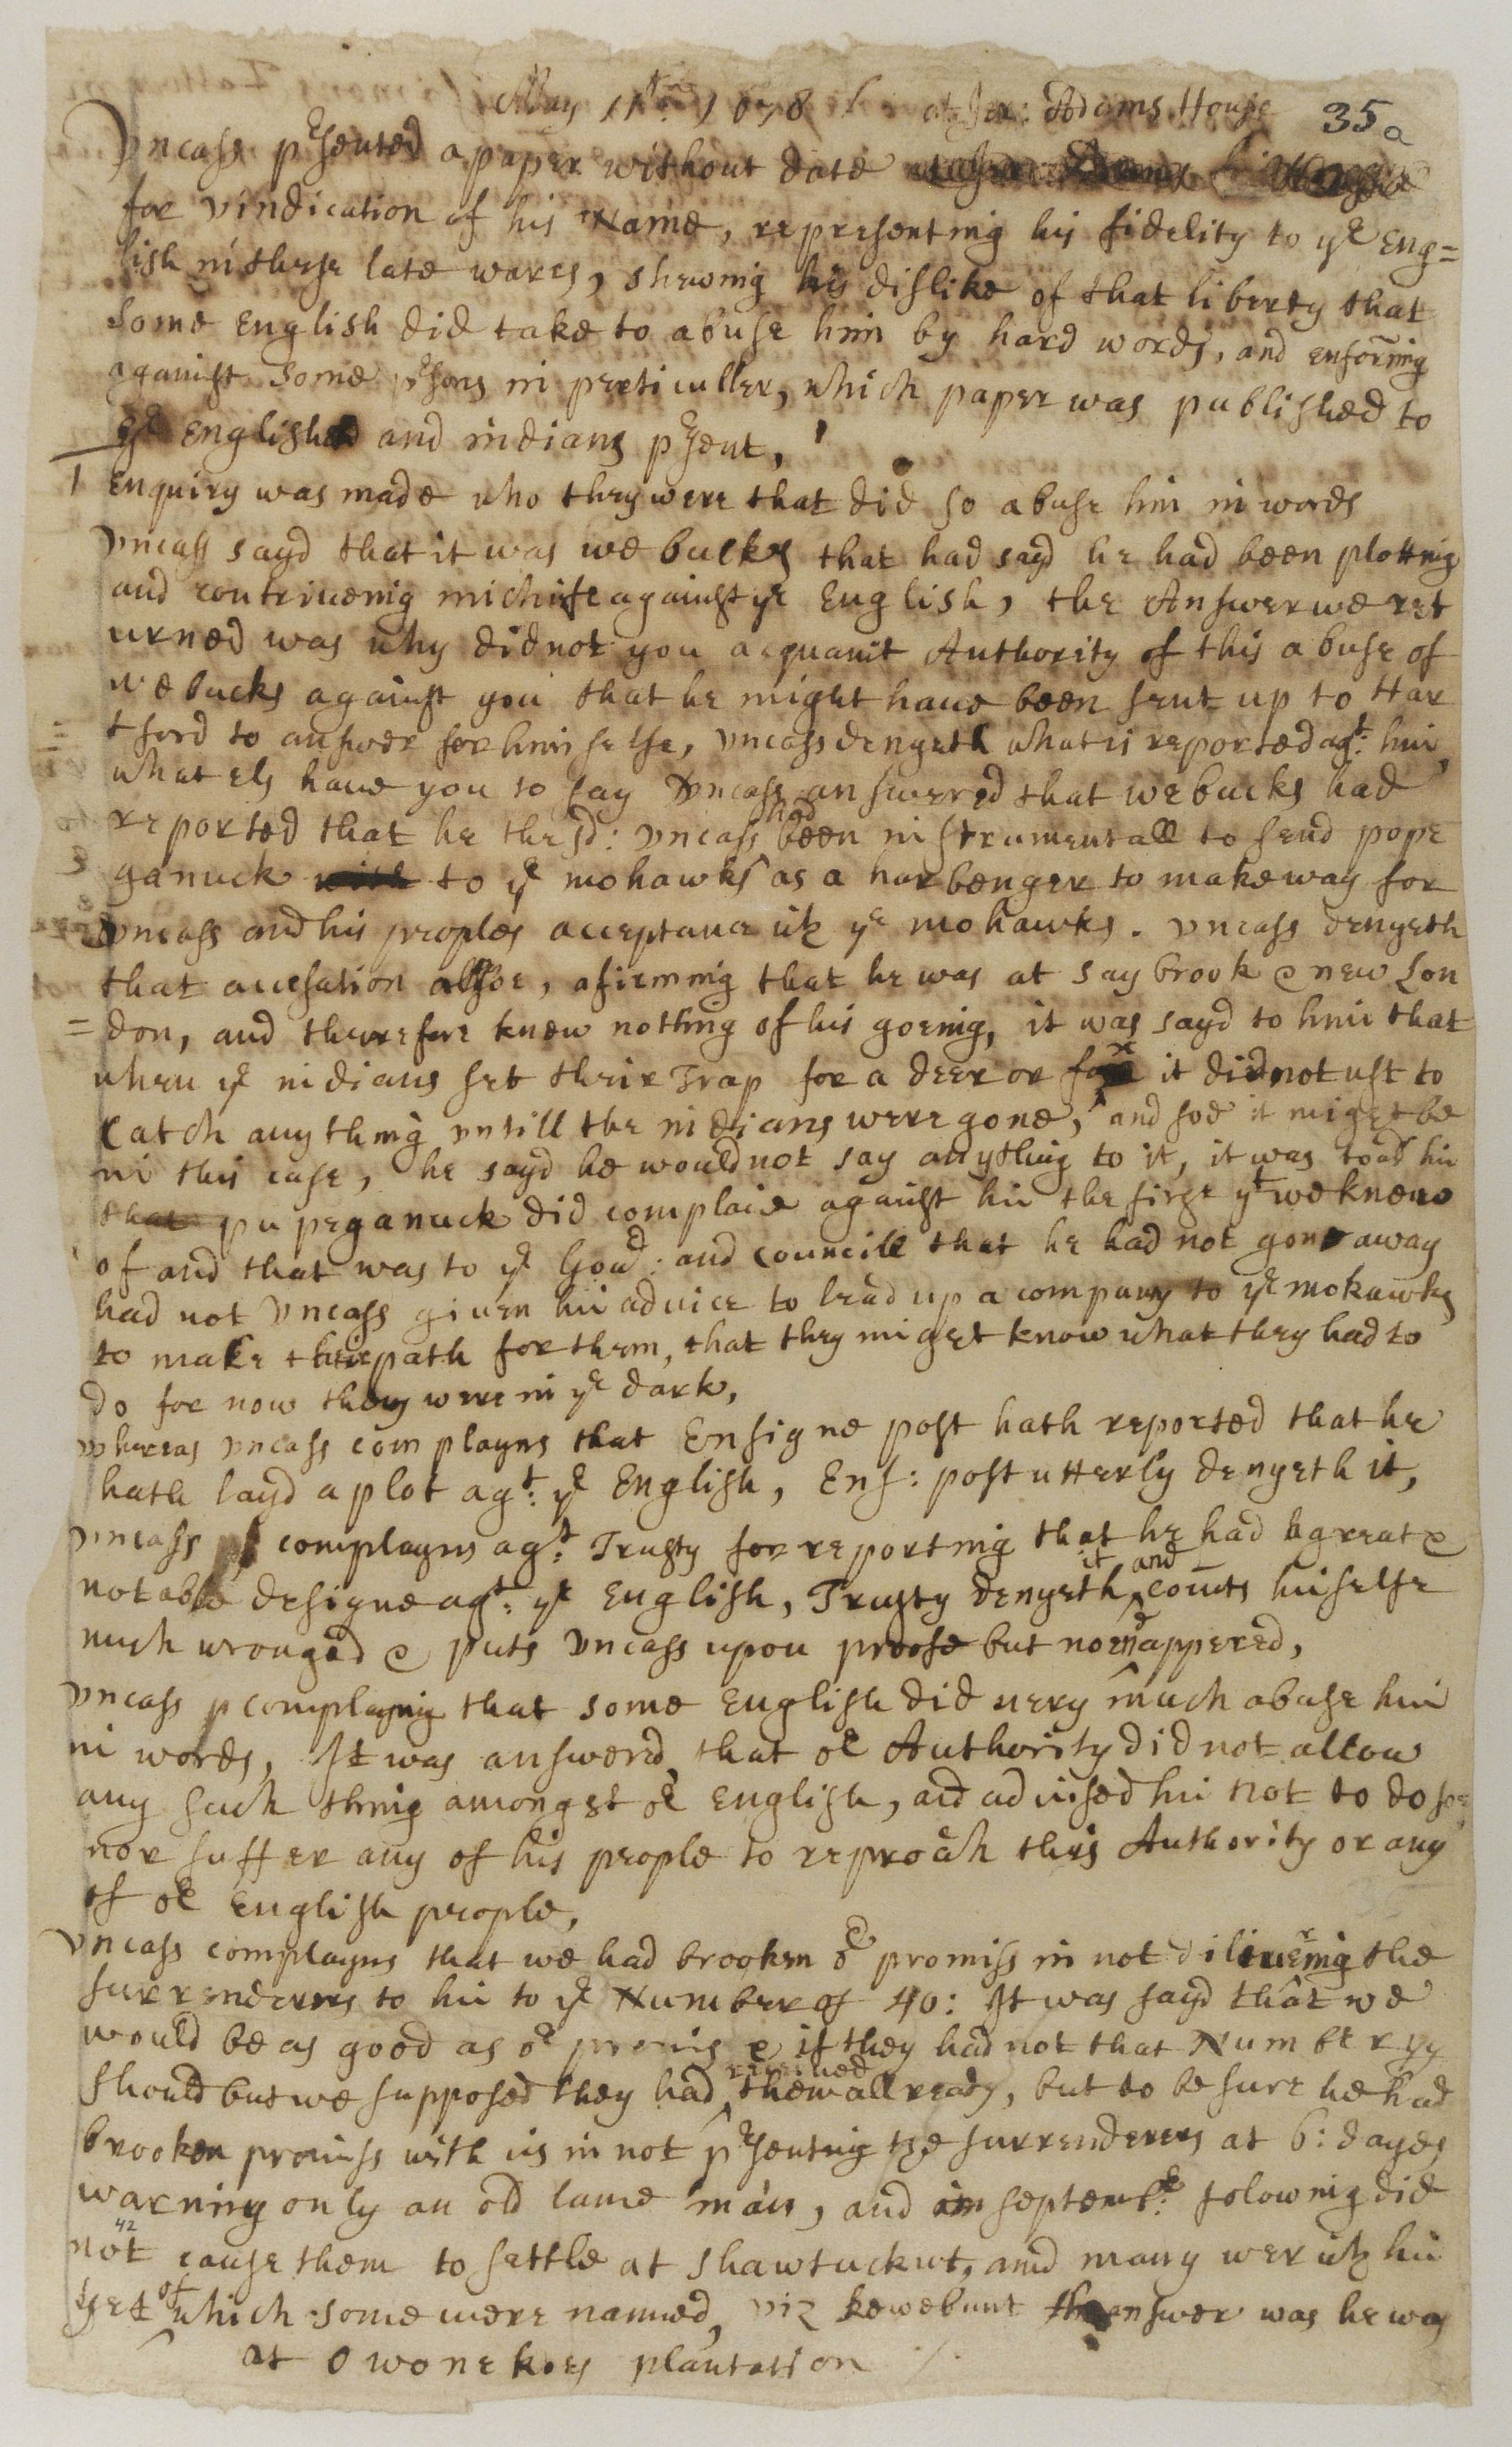 May 1678 Adams House 35a
Vncass presented a paper without date
for vindication of his Name, representing his fidelity to ye Eng=
lish in these late wares, shewing his dislike of that liberty that
Some English did take to abuse him by hard words, and enforming
against Some psons in perticuller, which paper was published to
ye English and indians psent,
1 Enquiry was made who they were that did so abuse him in words
Vncass sayd that it was webucks that had sayd he had been plotting
and contriveing michife against ye English, the Answer we ret
urned was why did not you acquaint Authority of this abuse of
webucks against you that he might have been sent up to Har
tford to answer for himselfe, Vncass denyeth what is reported agt: him,
what els have you to say Vncass answered that webucks had
reported that he the sd: Vncass had been instrumentall to send pope
ganuck with to ye mohawks as a harbenger to make way for
Vncass and his peoples acceptance with ye mohawks. Vncass denyeth
that accusation allsoe, afirming that he was at Saybrook & new Lon
=don, and therefore knew nothing of his goeing, it was sayd to him that
when ye indians set their Trap for a deer or fox it did not ust to
Catch any thing vntill the indians were gone, and soe it might be
in this case, he sayd he would not say anything to it, it was toad him
that pupeganuck did complaie against him the first yt we knew
of and that was to ye Govr: and Councill that he had not gone away
had not Vncass given him advice to lead up a company to ye mohawks
to make their path for them, that they might know what they had to
do for now they were in ye dark,
whereas Vncass complayns that Ensigne post hath reported that he
hath layd a plot agt: ye English, Ens: post utterly denyeth it,
Vncass complayns agt: Trusty for reporting that he had a great &
notable designe agt: ye English, Trusty denyeth it and counts himselfe
much wronged & puts Vncass upon proofe but none appered,
Vncass complaynig that some English did very much abuse him
in words, It was answered, that or Authority did not allow
any such thing amongst or English, and advised him not to do soe
nor suffer any of his people to reproach this Authority or any
of or English people,
Vncass complayns that we had brooken or promiss in not dilivering the
surrenderers to him to ye Number of 40: It was sayd that we
would be as good as or promis & if they had not that Number yy
should but we supposed they had received them allready, but to be sure he had
brooken promiss with us in not psenting the surrenderers at 6: dayes
warning only an old lame man, and in septembr: folowing did
42
not cause them to settle at Shawtuckut, and many wer with him
yet of which some were named, viz kewebunt the answer was he was
at Owonekoes plantation